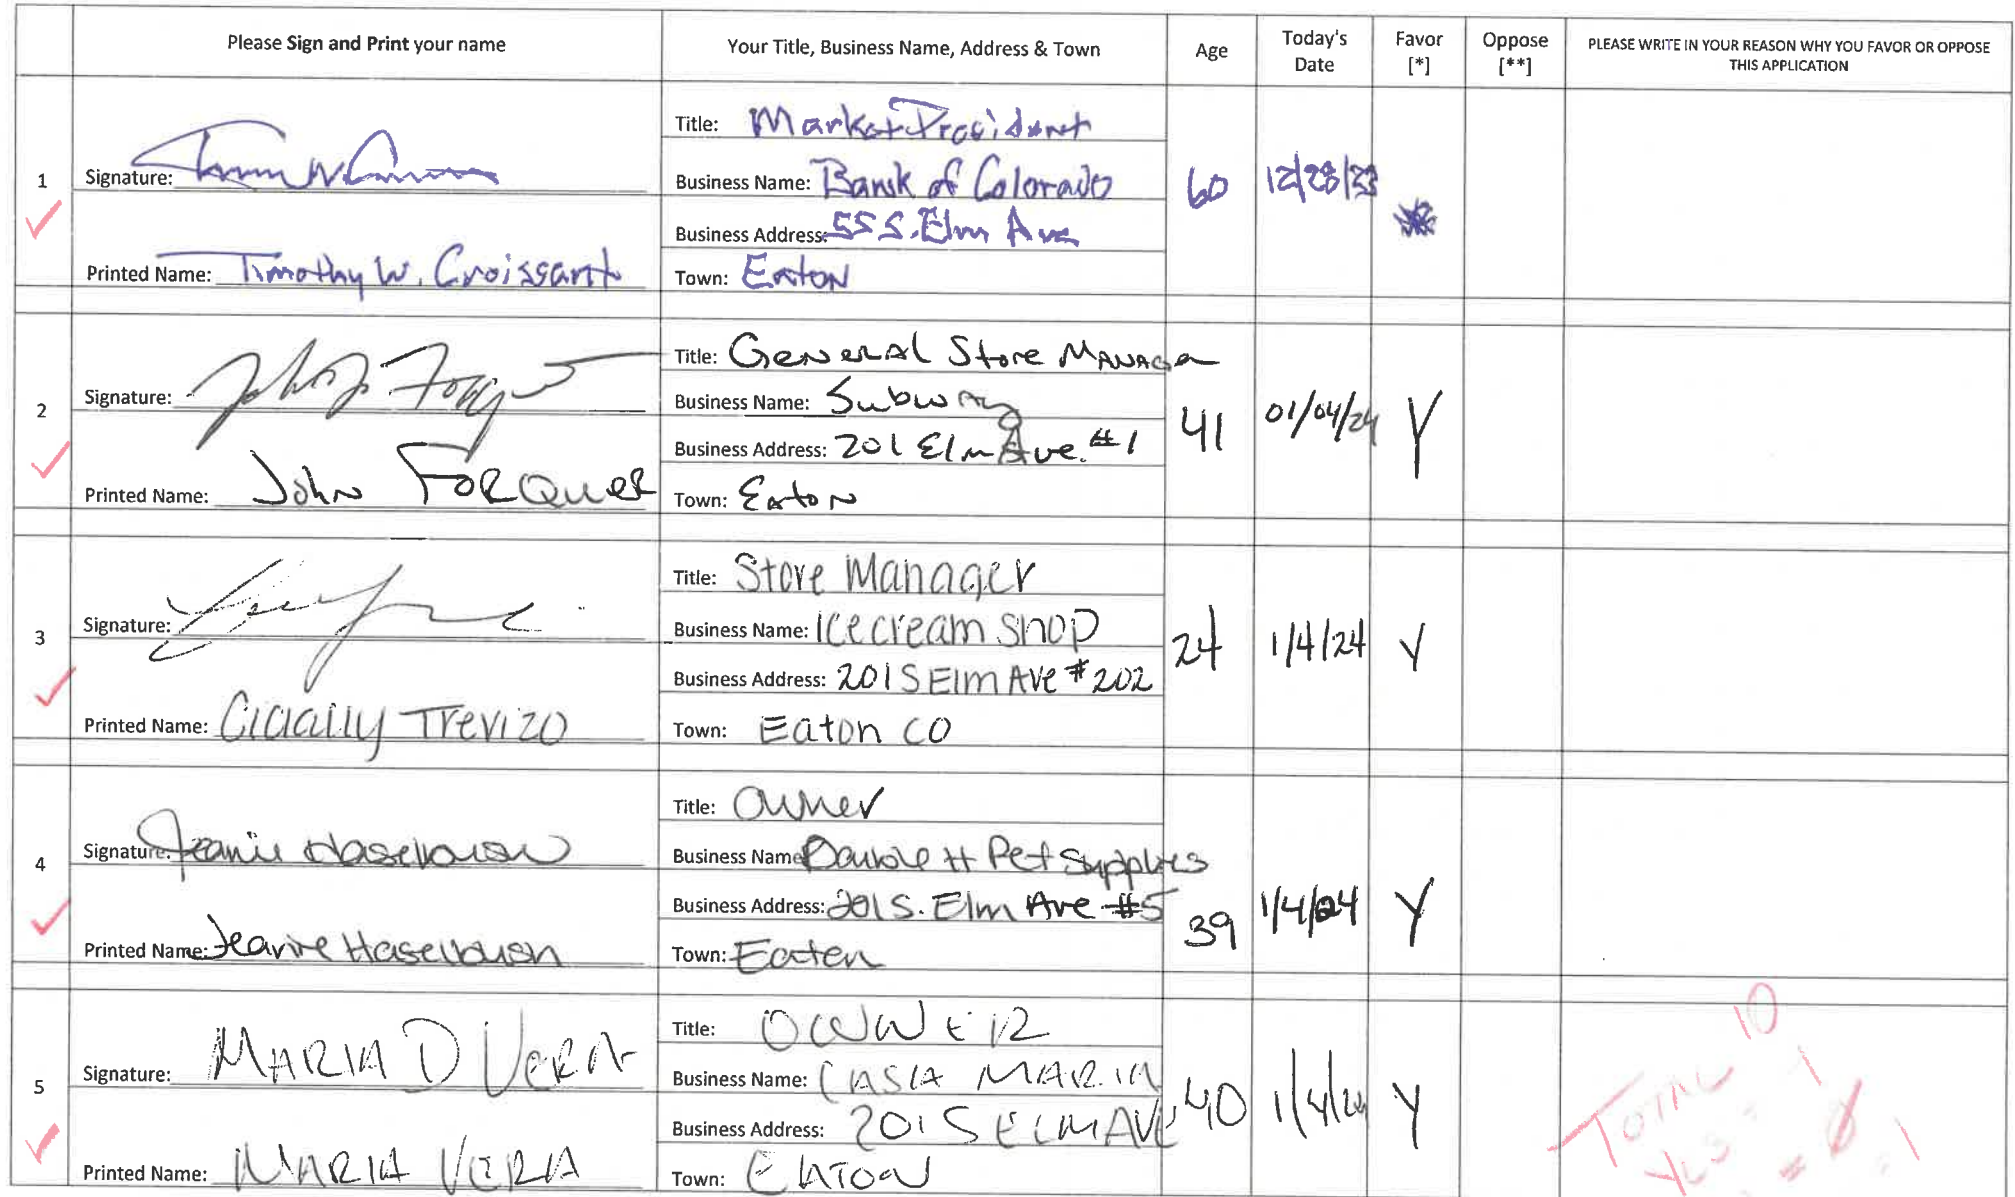 Please Sign and Print your name
Your Title, Business Name, Address & Town
Age
Today's Date
Favor [*]
Oppose [**]
PLEASE WRITE IN YOUR REASON WHY YOU FAVOR OR OPPOSE THIS APPLICATION
1
Signature:
Printed Name: Timothy W. Croissant
Title: Market President
Business Name: Bank of Colorado
Business Address: 55 S. Elm Ave
Town: Eaton
60
12/28/23
2
Signature:
Printed Name: John Forquer
Title: General Store Manager
Business Name: Subway
Business Address: 201 Elm Ave. #1
Town: Eaton
41
01/04/24
Y
3
Signature:
Printed Name: Trevizo
Title: Store Manager
Business Name: Icecream Shop
Business Address: 201 S Elm Ave #202
Town: Eaton CO
24
1/4/24
Y
4
Signature: Jeanie Haselbush
Printed Name: Haselbush
Title: Owner
Business Name: Double H Pet Supplies
Business Address: 201 S. Elm Ave #5
Town: Eaten
39
1/4/24
Y
5
Signature: MARIA D VERA
Printed Name: MARIA VERA
Title: OWNER
Business Name: CASIA MARIA
Business Address: 201 S ELM AVE
Town: EATON
40
1/4/24
Y
TOTAL 10
YES